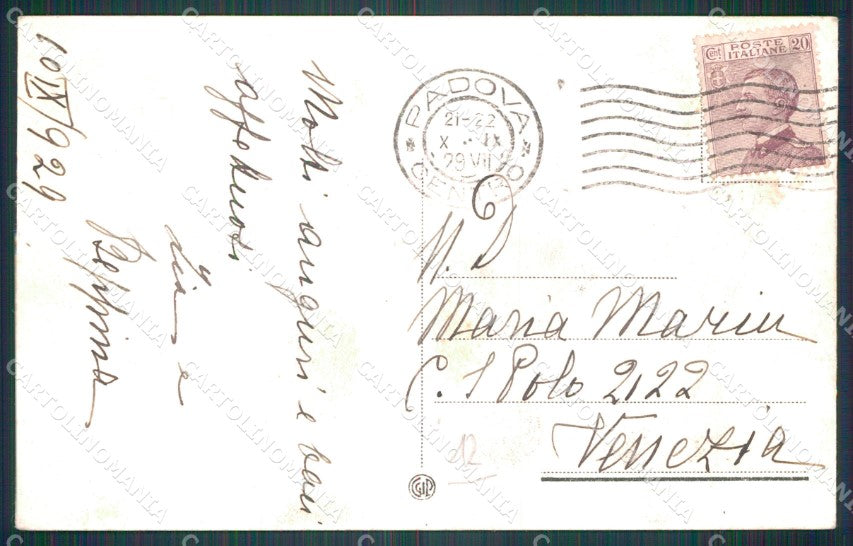 10 IX/929
Molti auguri e baci
affettuosi
Zia e
Beppina
PADOVA
21-22
X IX
29 VII
CENTRO
Cent POSTE 20
ITALIANE
N. D
Maria Marin
C. S Polo 2122
Venezia
12
CARTOLINOMANIA